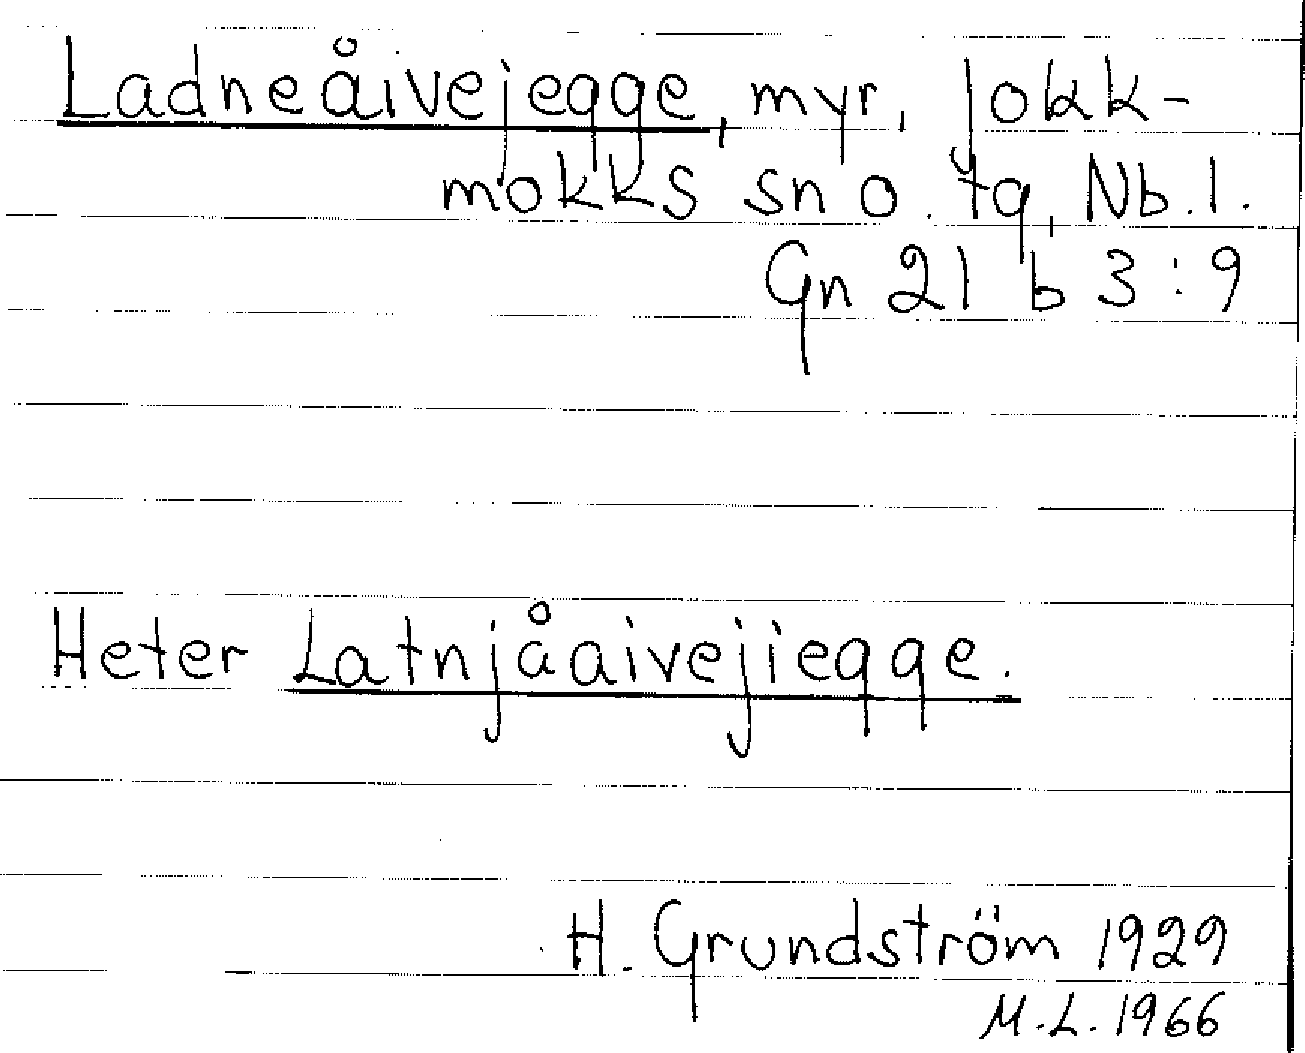 Ladneåivejegge, myr, Jokk-
mokks sn o. tg, Nb. l.
Gn 21 b 3:9
Heter Latnjåaivejiegge.
H. Grundström 1929
M.L. 1966